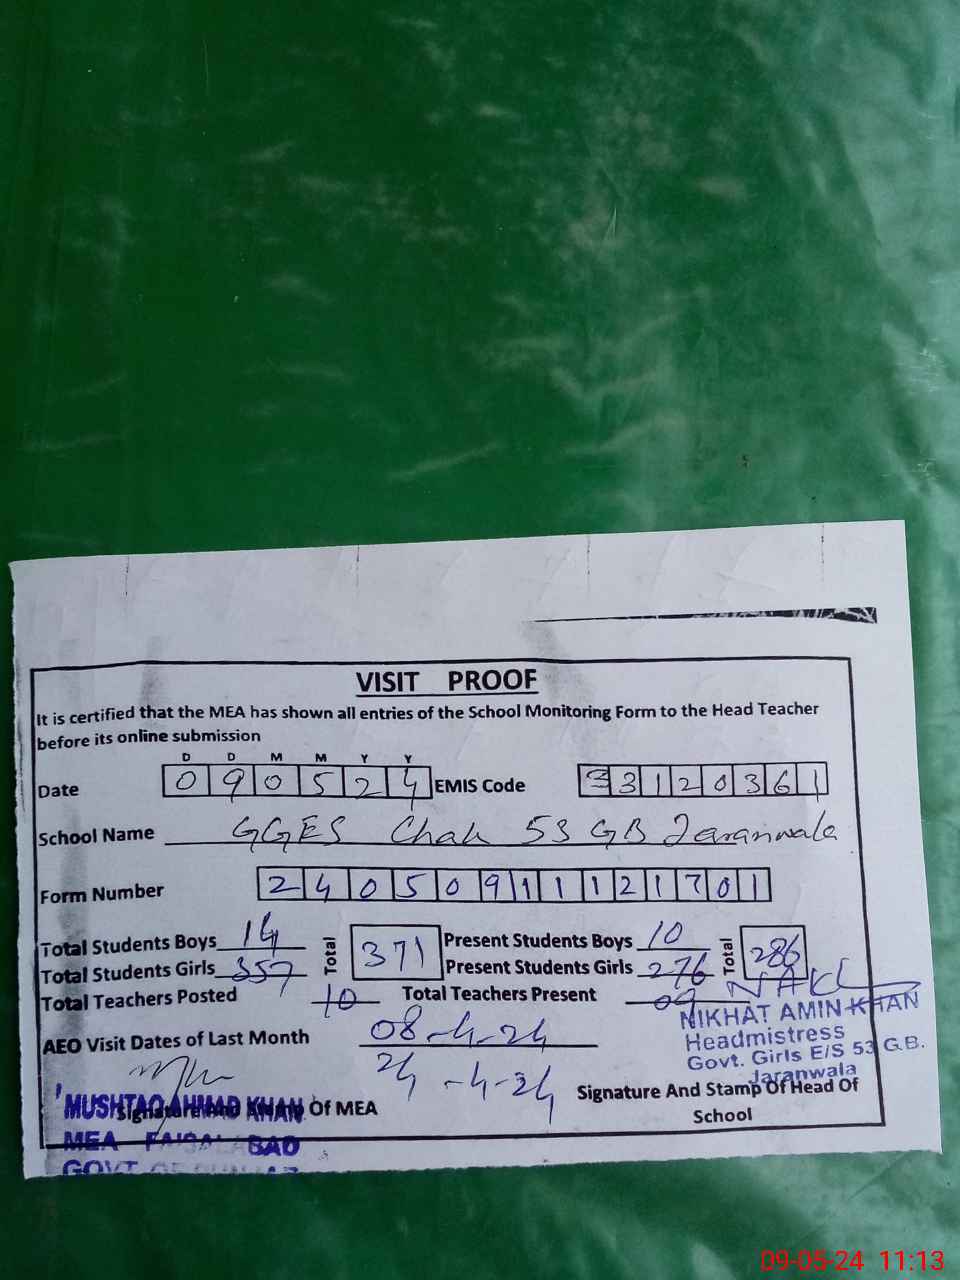 VISIT PROOF
It is certified that the MEA has shown all entries of the School Monitoring Form to the Head Teacher
before its online submission
D D M M Y Y
Date 0 9 0 5 2 4 EMIS Code 3 3 1 2 0 3 6 1
School Name GGES Chak 53 GB Jaranwala
Form Number 2 4 0 5 0 9 1 1 1 2 1 7 0 1
Total Students Boys 14 Total 371 Present Students Boys 10 Total 286
Total Students Girls 357 Present Students Girls 276
Total Teachers Posted 10 Total Teachers Present 09
NIKHAT AMIN KHAN
Headmistress
Govt. Girls E/S 53 G.B.
Jaranwala
AEO Visit Dates of Last Month 08-4-24
24-4-24
Signature And Stamp Of Head Of
School
MUSHTAQ AHMAD KHAN
Signature And Of MEA
MEA FAISALABAD
GOVT OF PUNJAB
09-05-24 11:13